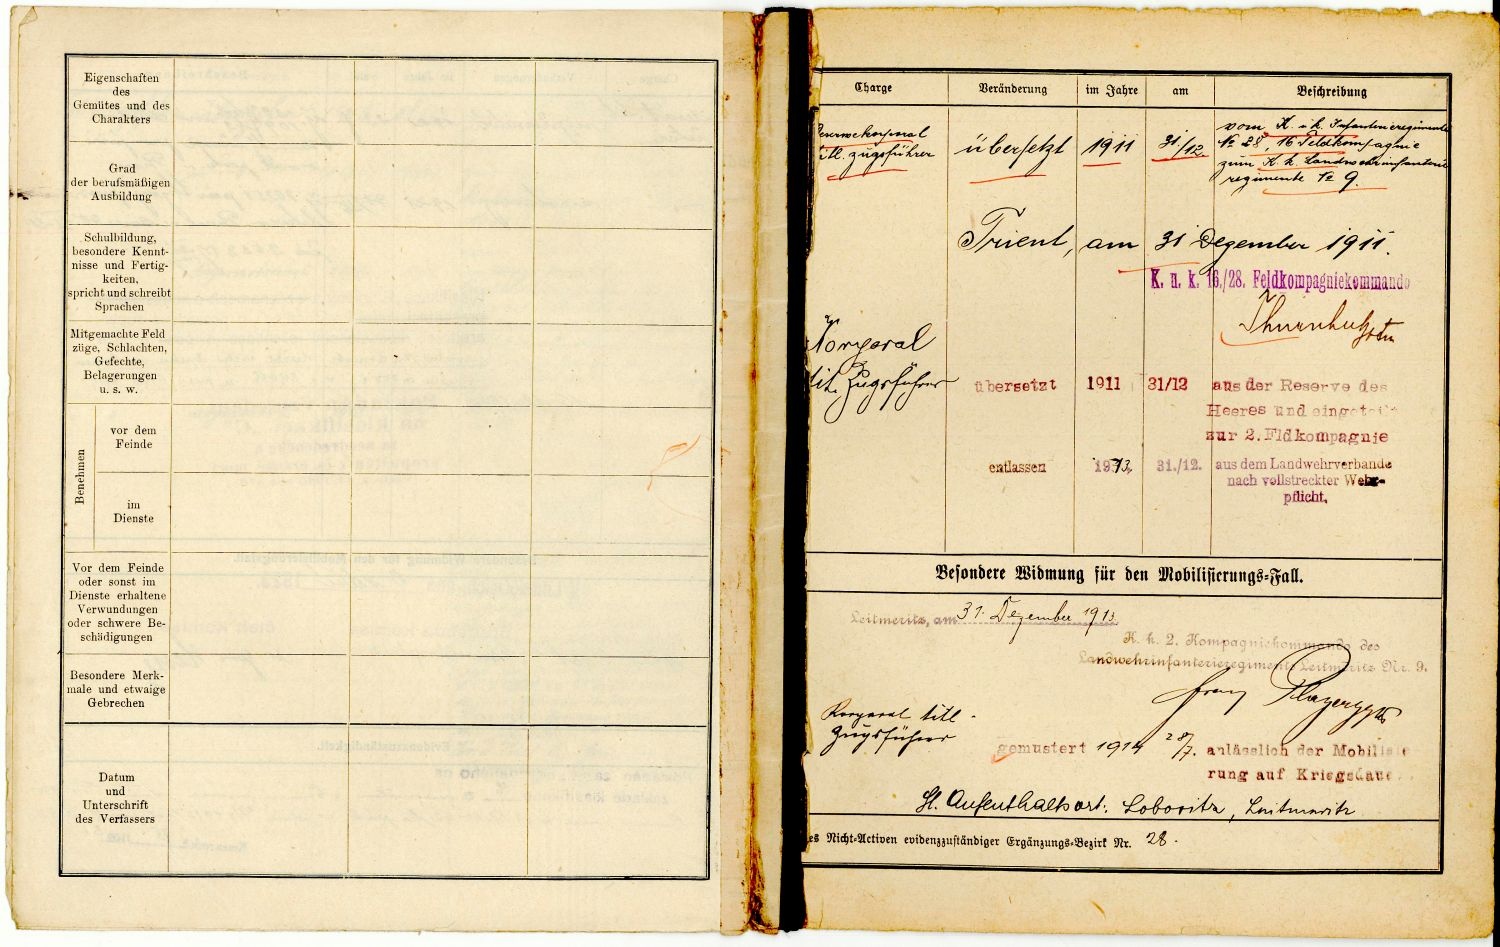 Eigenschaften
des
Gemütes und des
Charakters
Grad
der berufsmäßigen
Ausbildung
Schulbildung,
besondere Kennt-
nisse und Fertig-
keiten,
spricht und schreibt
Sprachen
Mitgemachte Feld
züge, Schlachten,
Gefechte,
Belagerungen
u. s. w.
Benehmen
vor dem
Feinde
im
Dienste
Vor dem Feinde
oder sonst im
Dienste erhaltene
Verwundungen
oder schwere Be-
schädigungen
Besondere Merk-
male und etwaige
Gebrechen
Datum
und
Unterschrift
des Verfassers
Charge Veränderung im Jahre am Beschreibung
Reservekorporal
tit. Zugsführer
übersetzt 1911 31/12.
vom K. u. k. Infanterieregimente
№ 28, 16 Feldkompagnie
zum K. k. Landwehrinfanterie
regimente № 9.
Trient, am 31 Dezember 1911.
K. u. k. 16./28. Feldkompagniekommando
Korporal
tit. Zugsführer übersetzt 1911 31/12 aus der Reserve des
Heeres und eingeteilt
zur 2. Fldkompagnie
entlassen 1913, 31./12. aus dem Landwehrverbande
nach vollstreckter Wehr-
pflicht.
Besondere Widmung für den Mobilisierungs-Fall.
Leitmeritz, am 31. Dezember 1913.
K. k. 2. Kompagniekommando des
Landwehrinfanterieregiments Leitmeritz Nr. 9.
Franz
Korporal titl.
Zugsführer
gemustert 1914 28/7. anlässlich der Mobilisie
rung auf Kriegsdaue
St. Aufenthaltsort: Lobositz, Leitmeritz
es Nicht-Activen evidenzzuständiger Ergänzungs-Bezirk Nr. 28.